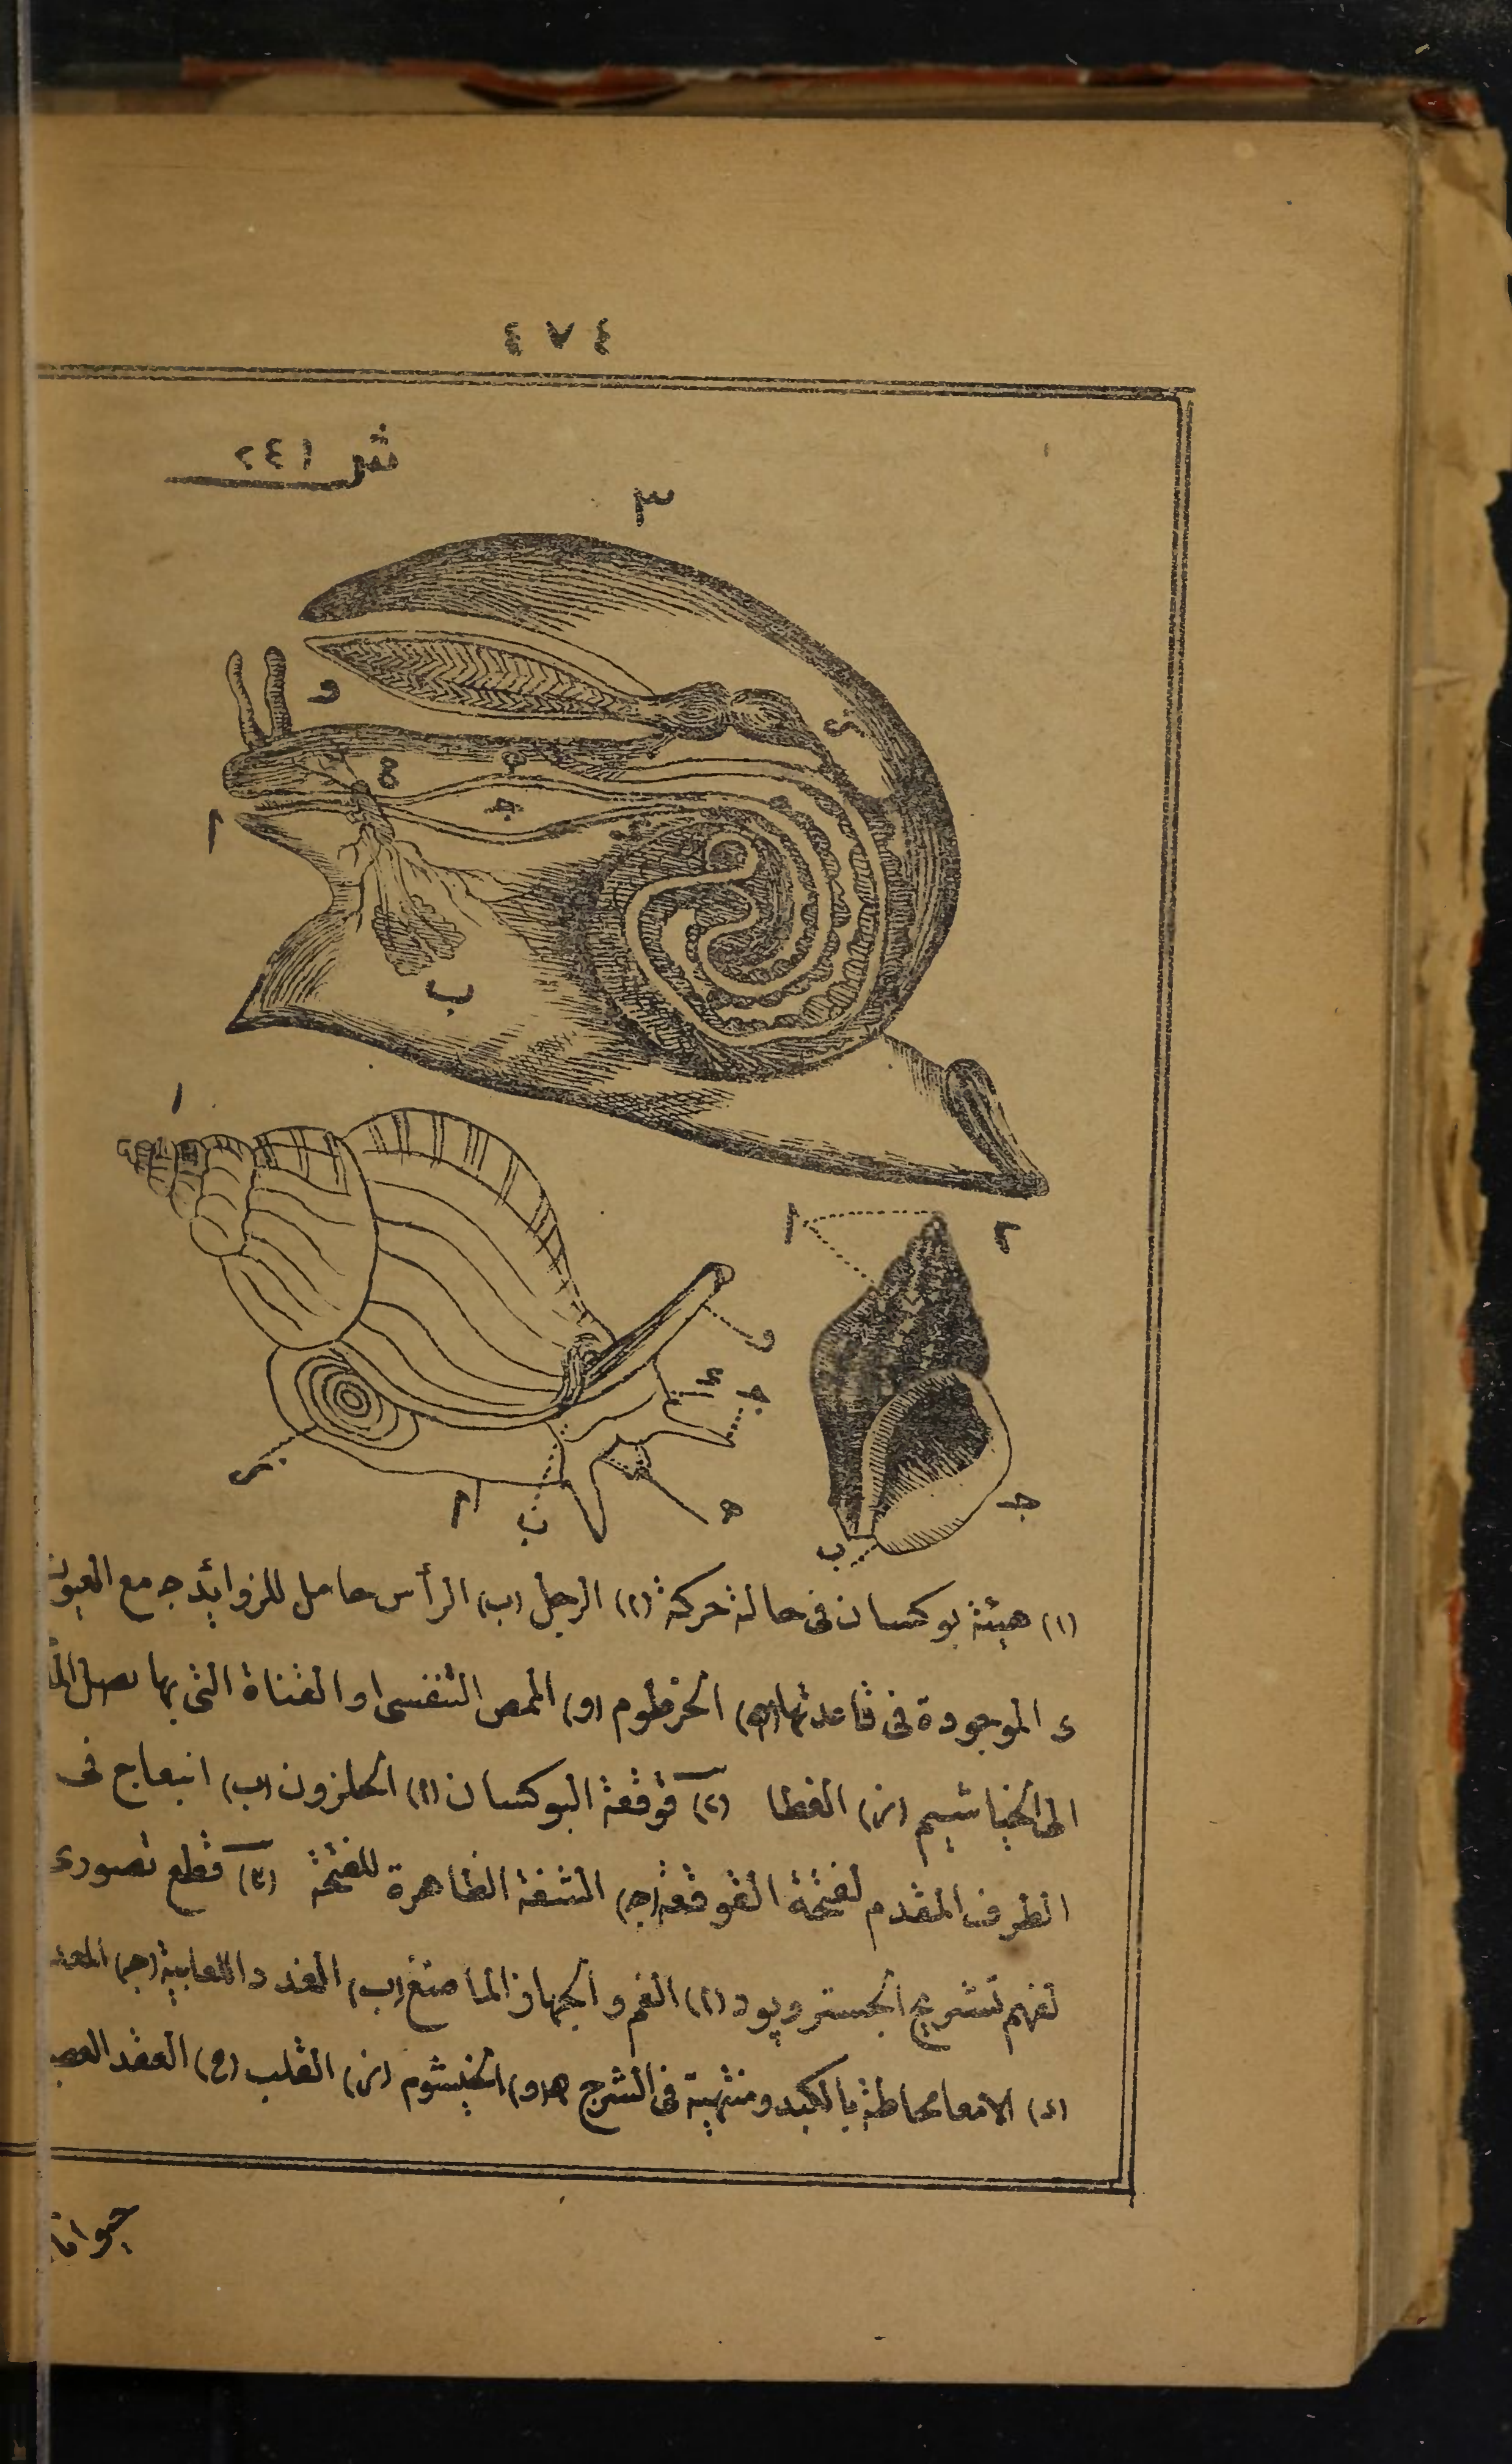 ٤٧٤
ش ٢٤١
٣
و
ز
ء
ج
ا
ب
١
٢
ا
و
ء
ج
ز
ا
ب
ه
ج
ب
(١) هيئة بوكسان فى حالة حركة (ا) الرجل (ب) الرأس حامل للزوايد ج مع العيون
ء الموجودة فى قاعدتها (ه) الخرطوم (و) الممص التنفسى او القناة التى بها يصل
الى الخياشيم (ز) الغطا (٢) قوقعة البوكسان (ا) الحلزون (ب) انبعاج فى
الطرف المقدم لفتحة القوقعة (ج) الشفة الظاهرة للفتحة (٣) قطع تصورى
لفهم تشريح الجستروپود (ا) الفم والجهاز الماضغ (ب) الغدد اللعابية (ج) المعد
(ء) الامعا محاطة بالكبد ومنتهية فى الشرج ه (و) الخيشوم (ز) القلب (ح) العقد العصب